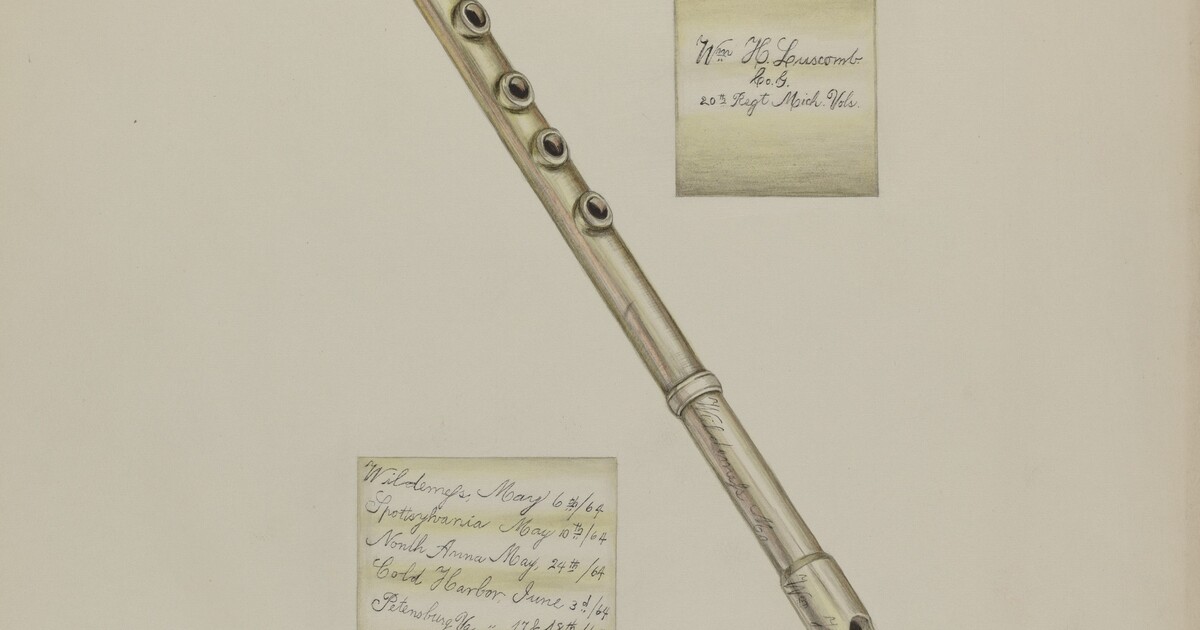 Wm H. Luscomb
Co. G.
20th Regt Mich. Vols.
Wilderneſs, May 6th/64
Spottsylvania May 10th/64
North Anna May, 24th/64
Cold Harbor, June 3d/64
Petersburg Va. " 17 & 18th
Wilderneſs Ma
Wm